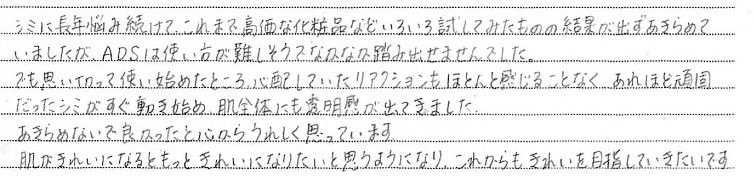 シミに長年悩み続けて、これまで高価な化粧品などいろいろ試してみたものの結果が出ずあきらめて
いましたが、ADSは使い方が難しそうでなかなか踏み出せませんでした。
でも思い切って使い始めたところ、心配していたリアクションもほとんど感じることなく、あれほど頑固
だったシミがすぐ動き始め、肌全体にも透明感が出てきました。
あきらめないで良かったと心からうれしく思っています。
肌がきれいになるともっときれいになりたいと思うようになり、これからもきれいを目指していきたいです